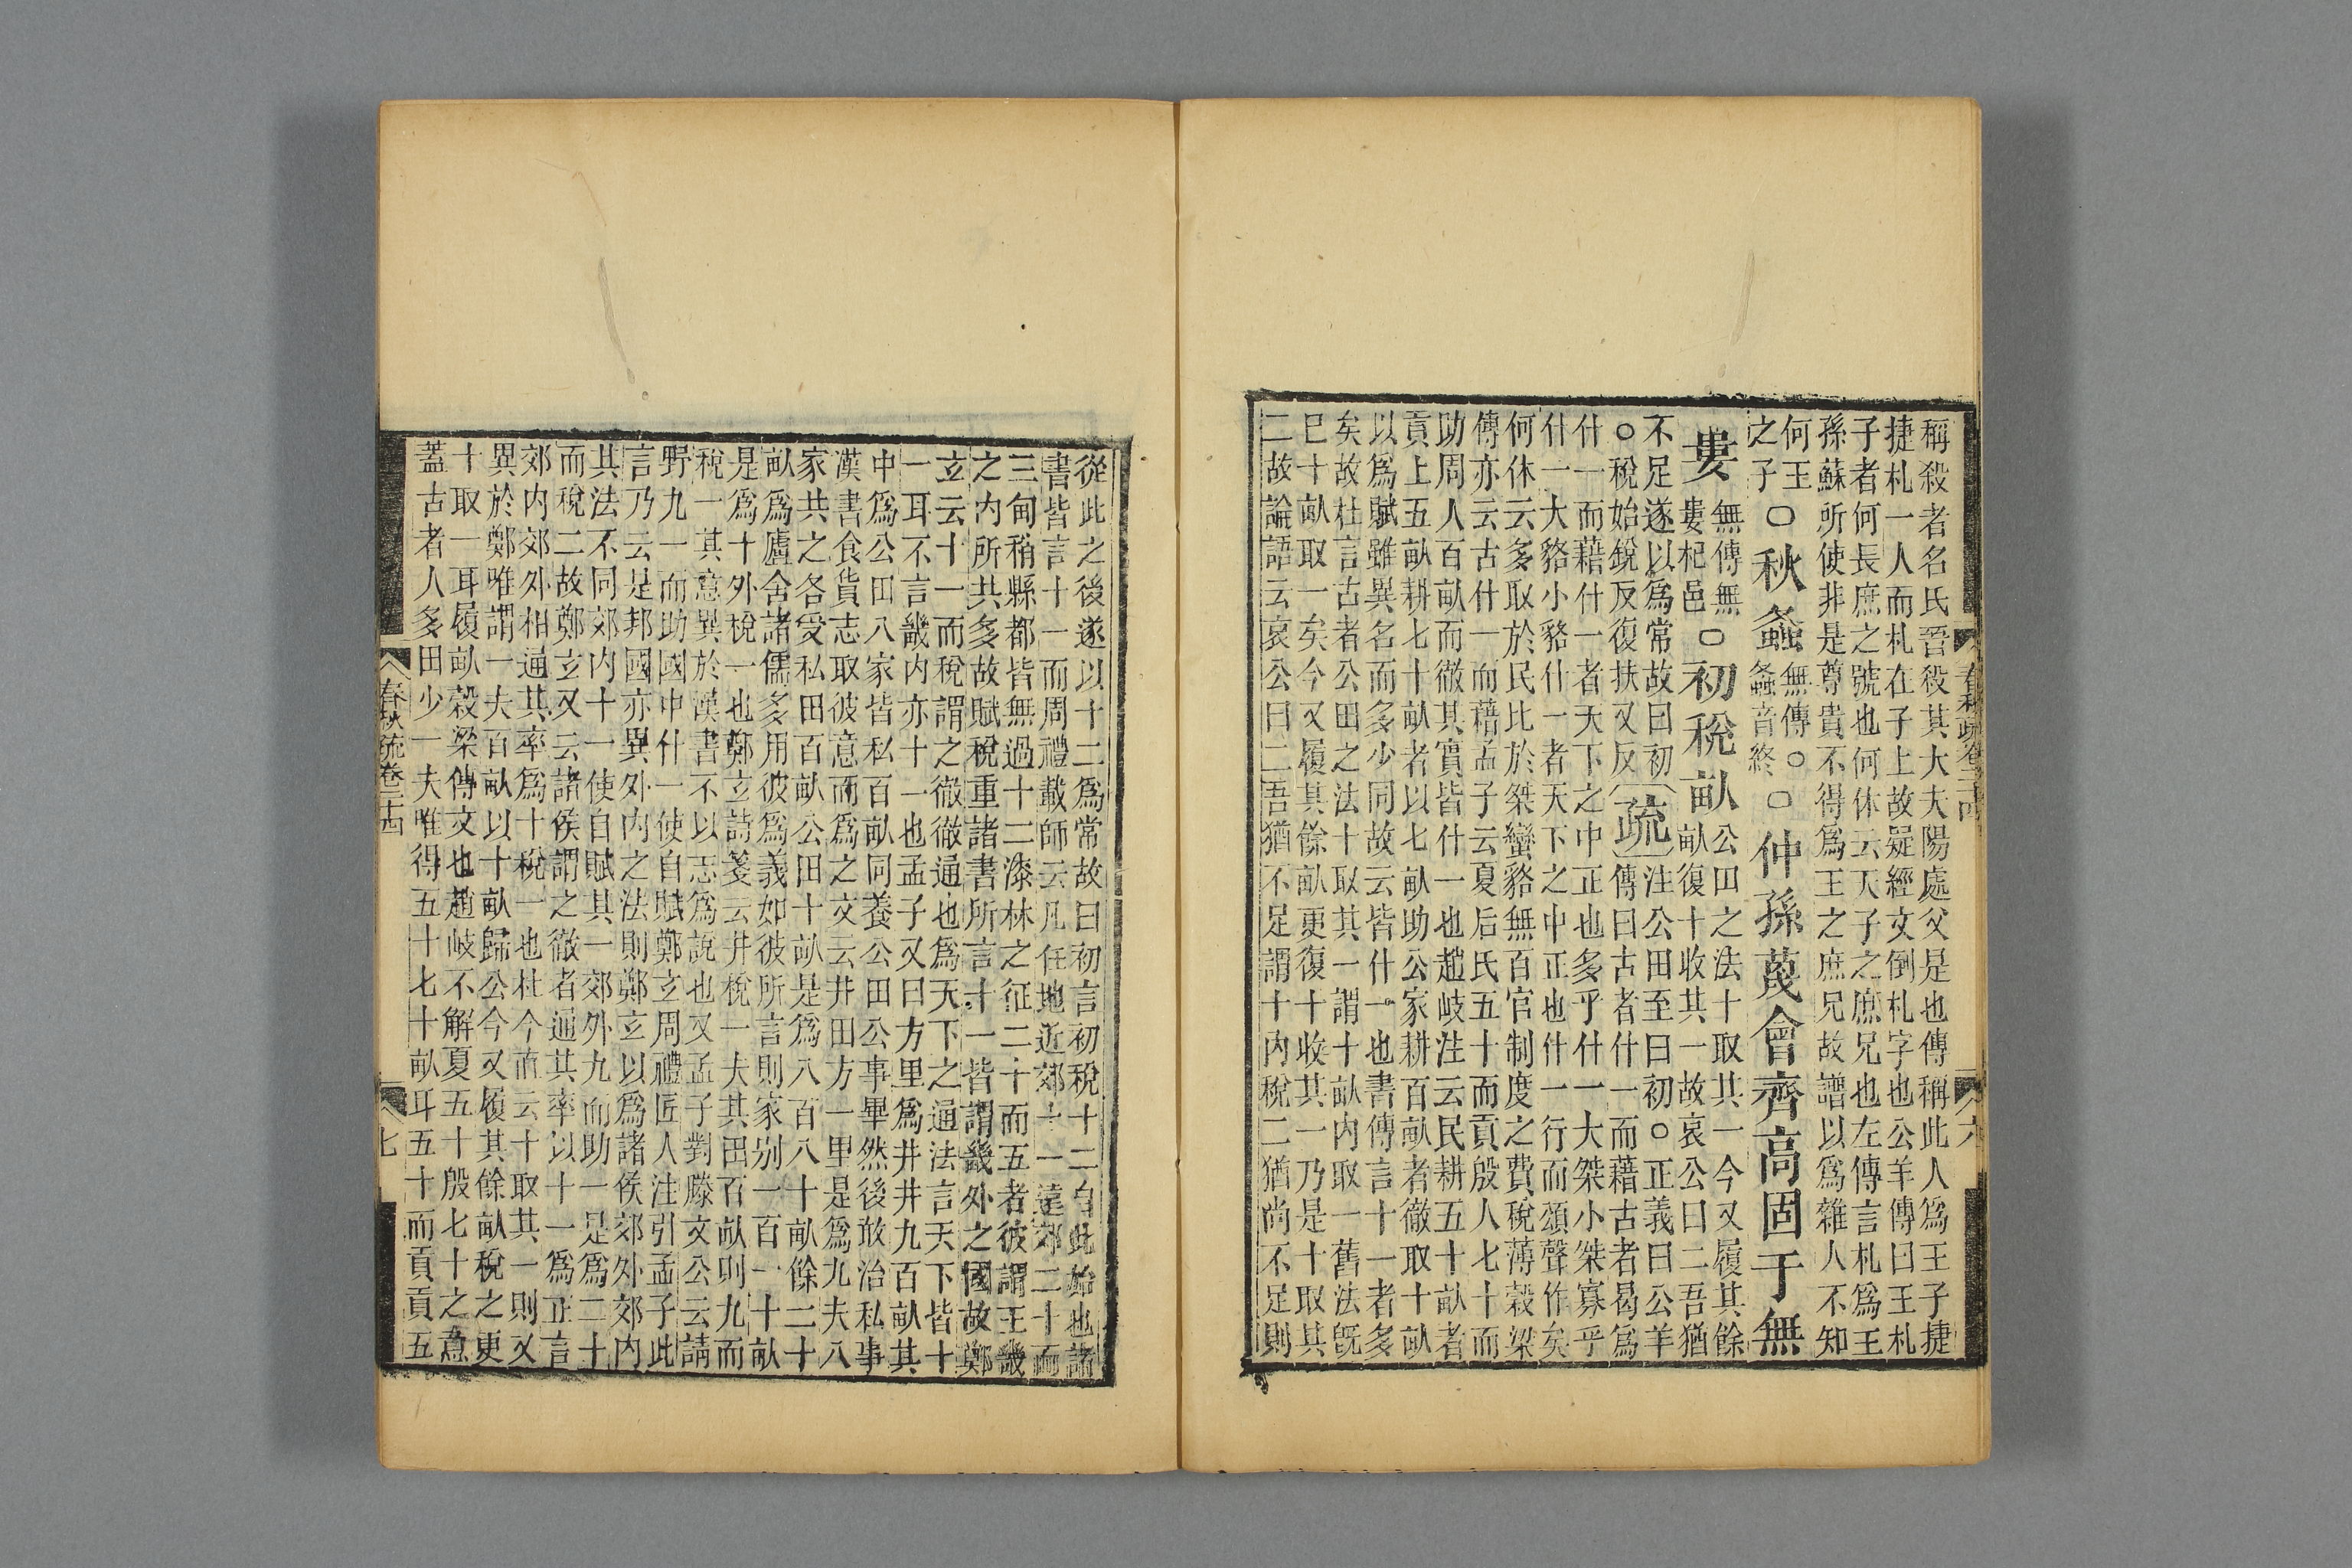 稱殺者名氏晉殺其大夫陽處父是也傳稱此人爲王子捷
捷札一人而札在子上故疑經文倒札字也公羊傳曰王札
子者何長庶之號也何休云天子之庶兄也左傳言札爲王
孫蘇所使非是尊貴不得爲王之庶兄故譜以爲雜人不知
何王
之子
○秋螽
無傳○
螽音終
○仲孫蔑會齊高固于無
婁
無傳無
婁杞邑
○初稅畝
公田之法十取其一今又履其餘
畝復十收其一故哀公曰二吾猶
不足遂以爲常故曰初
○稅始銳反復扶又反
疏
注公田至曰初○正義曰公羊
傳曰古者什一而藉古者曷爲
什一而藉什一者天下之中正也多乎什一大桀小桀寡乎
什一大貉小貉什一者天下之中正也什一行而頌聲作矣
何休云多取於民比於桀蠻貉無百官制度之費稅薄穀梁
傳亦云古什一而藉孟子云夏后氏五十而貢殷人七十而
助周人百畝而徹其實皆什一也趙岐注云民耕五十畝者
貢上五畝耕七十畝者以七畝助公家耕百畝者徹取十畝
以爲賦雖異名而多少同故云皆什一也書傳言十一者多
矣故杜言古者公田之法十取其一謂十畝内取一舊法既
已十畝取一矣今又履其餘畝更復十收其一乃是十取其
二故論語云哀公曰二吾猶不足謂十内稅二猶尚不足則
春秋疏卷二十四
六
從此之後遂以十二爲常故曰初言初稅十二自此始也諸
書皆言十一而周禮載師云凡任地近郊十一遠郊二十而
三甸稍縣都皆無過十二漆林之征二十而五者彼謂王畿
之内所共多故賦稅重諸書所言十一皆謂畿外之國故鄭
玄云十一而稅謂之徹徹通也爲天下之通法言天下皆十
一耳不言畿内亦十一也孟子又曰方里爲井井九百畝其
中爲公田八家皆私百畝同養公田公事畢然後敢治私事
漢書食貨志取彼意而爲之文云井田方一里是爲九夫八
家共之各受私田百畝公田十畝是爲八百八十畝餘二十
畝爲廬舍諸儒多用彼爲義如彼所言則家別一百一十畝
是爲十外稅一也鄭玄詩箋云井稅一夫其田百畝則九而
稅一其意異於漢書不以志爲說也又孟子對滕文公云請
野九一而助國中什一使自賦鄭玄周禮匠人注引孟子此
言乃云是邦國亦異外内之法則鄭玄以爲諸侯郊外郊内
其法不同郊内十一使自賦其一郊外九而助一是爲二十
而稅二故鄭玄又云諸侯謂之徹者通其率以十一爲正言
郊内郊外相通其率爲十稅一也杜今直云十取其一則又
異於鄭唯謂一夫百畝以十畝歸公今又履其餘畝稅之更
十取一耳履畝穀梁傳文也趙岐不解夏五十殷七十之意
蓋古者人多田少一夫唯得五十七十畝耳五十而貢貢五
春秋疏卷二十四
七